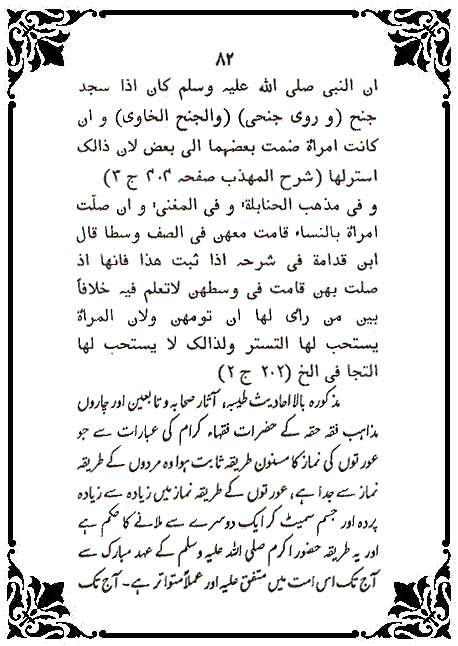 ۸۲
ان النبی صلی اللہ علیہ وسلم کان اذا سجد
جنح (و روی جنحی) (والجنح الخاوی) و ان
کانت امراۃ ضمت بعضھما الی بعض لان ذالک
استرلھا (شرح المھذب صفحہ ۴۰۴ ج ۳)
و فی مذھب الحنابلۃ و فی المغنی و ان صلّت
امراۃ بالنساء قامت معھن فی الصف وسطا قال
ابن قدامۃ فی شرحہ اذا ثبت ھذا فانھا اذ
صلت بھن قامت فی وسطھن لاتعلم فیہ خلافاً
بین من رای لھا ان تومھن ولان المراۃ
یستحب لھا التستر ولذالک لا یستحب لھا
التجا فی الخ (۲۰۲ ج ۲)
مذکورہ بالا احادیث طیبہ، آثار صحابہ و تابعین اور چاروں
مذاہب فقہ حقہ کے حضرات فقہاء کرام کی عبارات سے جو
عورتوں کی نماز کا مسنون طریقہ ثابت ہوا وہ مردوں کے طریقہ
نماز سے جدا ہے، عورتوں کے طریقہ نماز میں زیادہ سے زیادہ
پردہ اور جسم سمیٹ کر ایک دوسرے سے ملانے کا حکم ہے
اور یہ طریقہ حضور اکرم صلی اللہ علیہ وسلم کے عہد مبارک سے
آج تک اس امت میں متفق علیہ اور عملاً متواتر ہے۔ آج تک